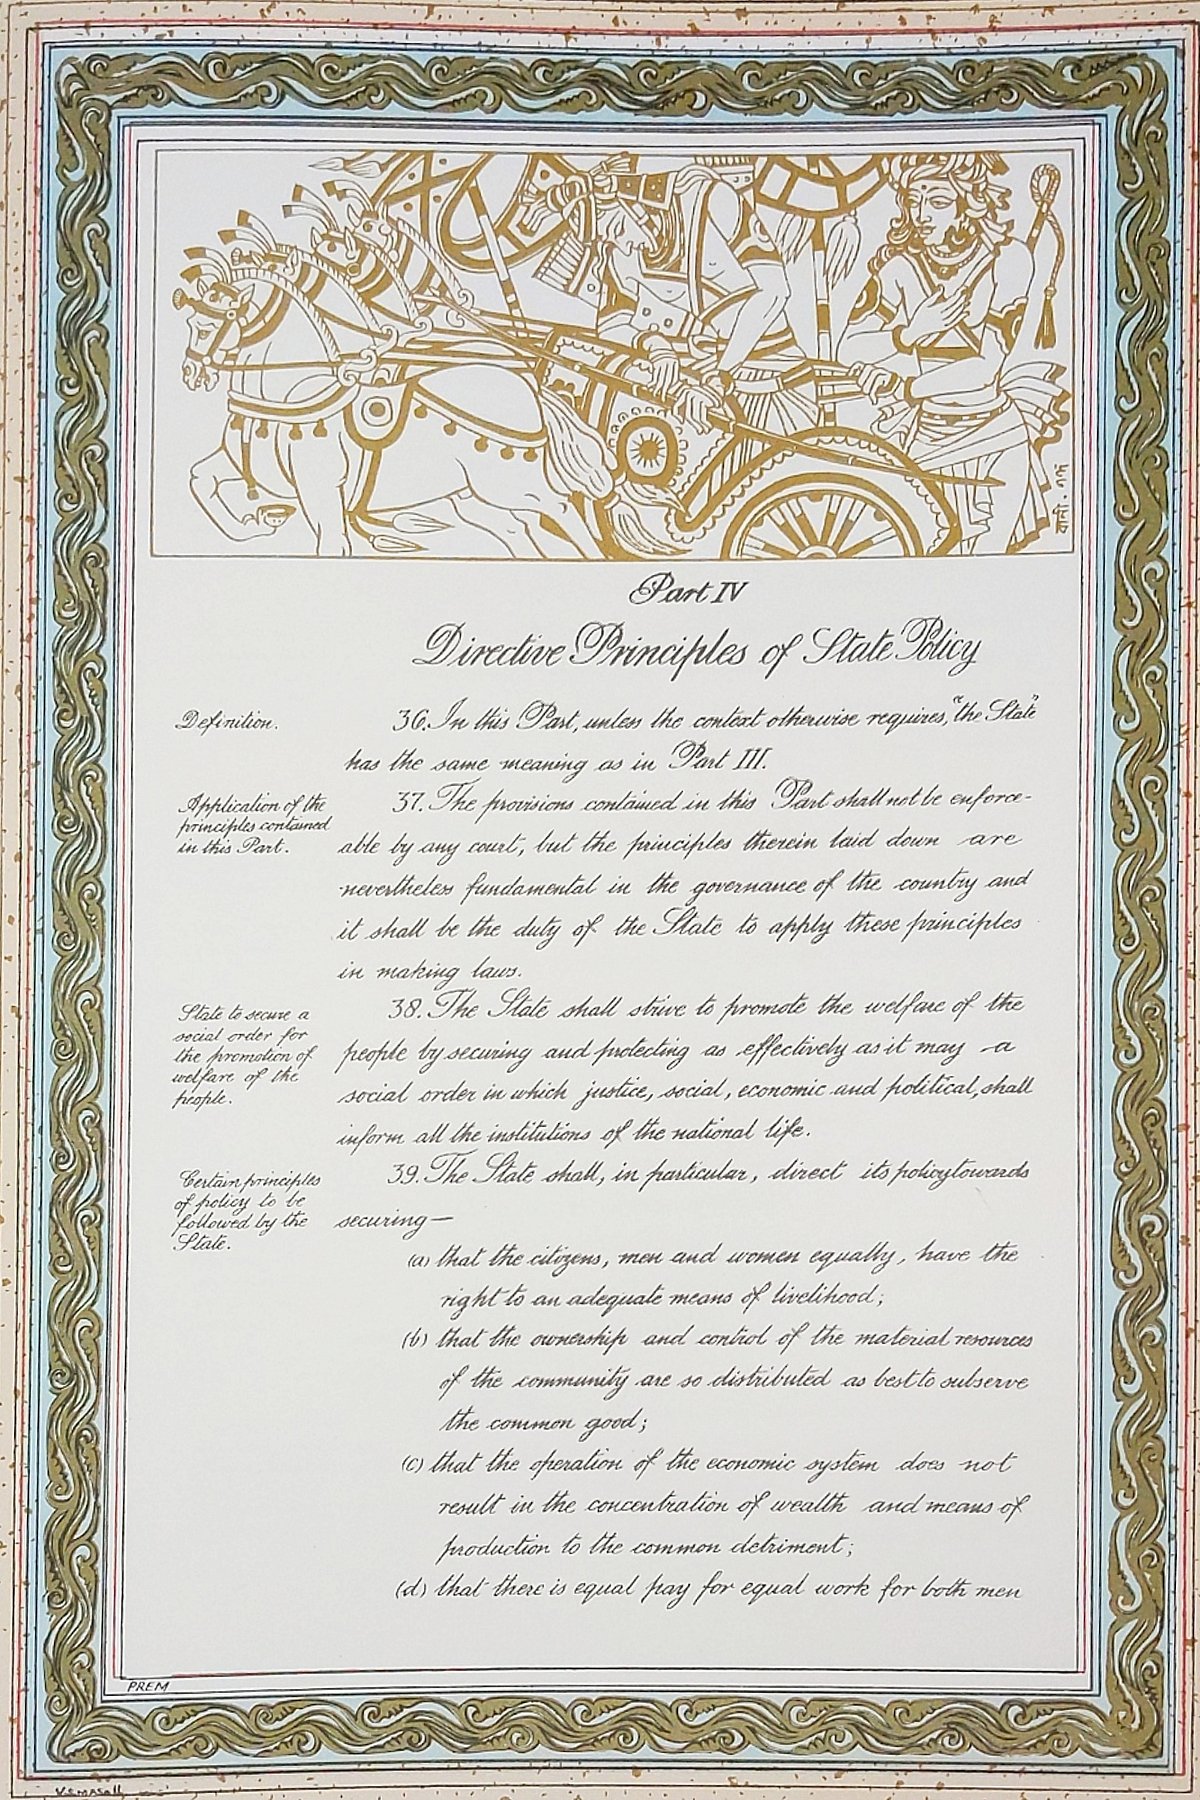 Part IV
Directive Principles of State Policy
Definition.
36. In this Part, unless the context otherwise requires, "the State"
has the same meaning as in Part III.
Application of the
principles contained
in this Part.
37. The provisions contained in this Part shall not be enforce-
able by any court, but the principles therein laid down are
nevertheless fundamental in the governance of the country and
it shall be the duty of the State to apply these principles
in making laws.
State to secure a
social order for
the promotion of
welfare of the
people.
38. The State shall strive to promote the welfare of the
people by securing and protecting as effectively as it may a
social order in which justice, social, economic and political, shall
inform all the institutions of the national life.
Certain principles
of policy to be
followed by the
State.
39. The State shall, in particular, direct its policy towards
securing—
(a) that the citizens, men and women equally, have the
right to an adequate means of livelihood;
(b) that the ownership and control of the material resources
of the community are so distributed as best to subserve
the common good;
(c) that the operation of the economic system does not
result in the concentration of wealth and means of
production to the common detriment;
(d) that there is equal pay for equal work for both men
PREM